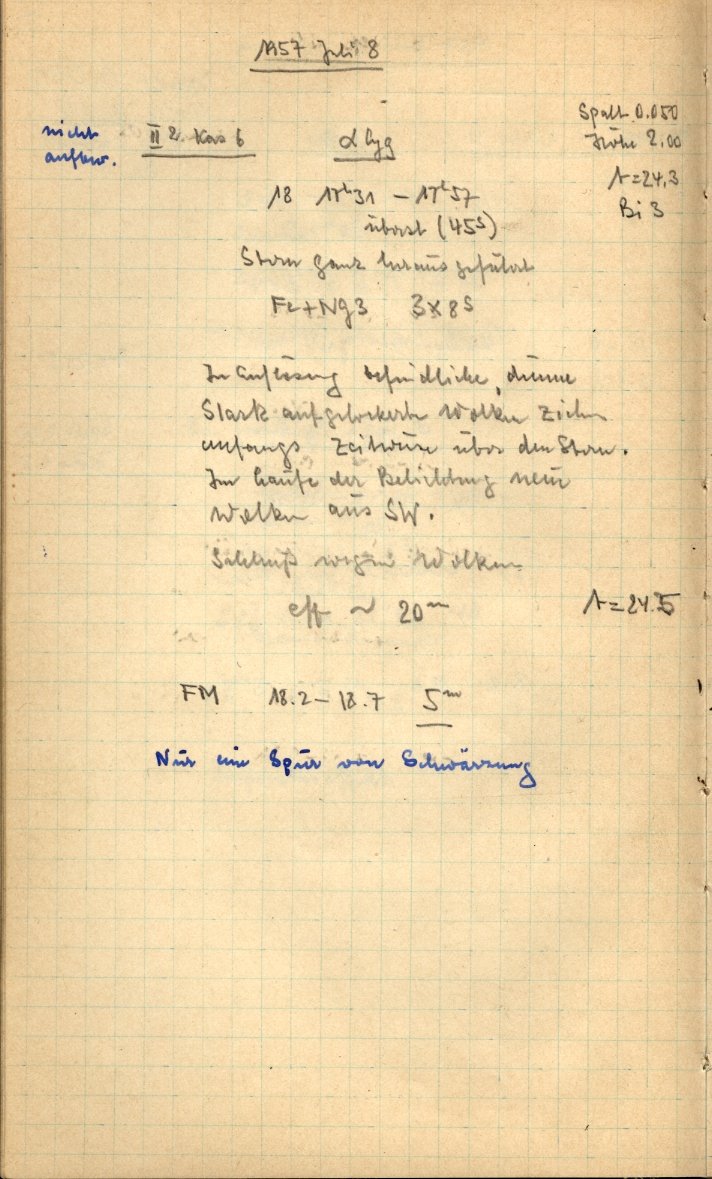 1957 Juli 8
Spalt 0.050
Höhe 2.00
Λ=24,3
Bi 3
nicht
aufbew.
II 2 Kas 6
α Cyg
18 17h31 – 17h57
überst (45s)
Stern ganz herausgeführt
Fe+Ng3 3x8s
In Auflösung befindliche, dünne
Stark aufgelockerte Wolken ziehen
anfangs Zeitweise über den Stern.
Im Laufe der Belichtung neue
Wolken aus SW.
Schluß wegen Wolken
eff ~ 20m
Λ=24.5
FM 18.2–18.7 5m
Nur eine Spur von Schwärzung